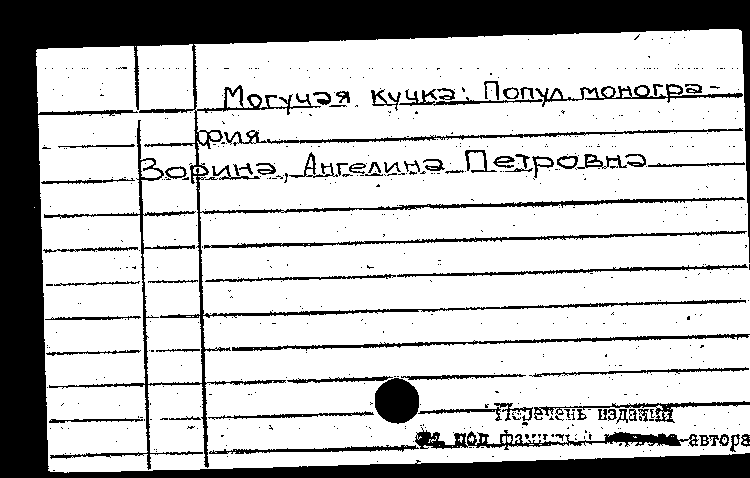 Могучая кучка: Попул. моногра-
фия.
Зорина, Ангелина Петровна
Перечень изданий
см. под фамилией автора